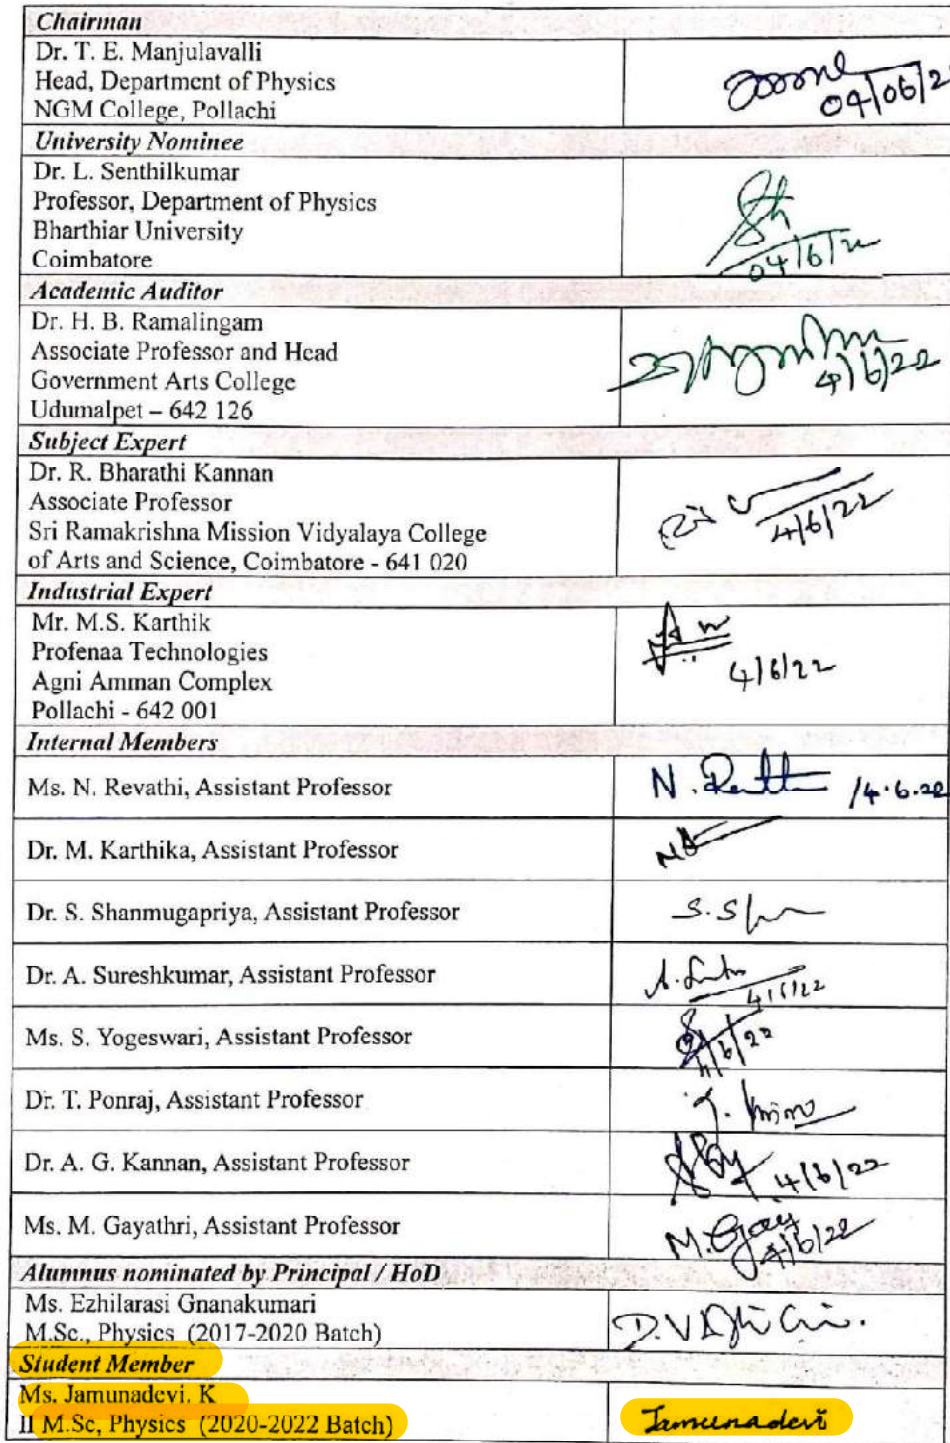 Chairman
Dr. T. E. Manjulavalli
Head, Department of Physics
NGM College, Pollachi
04/06/2
University Nominee
Dr. L. Senthilkumar
Professor, Department of Physics
Bharthiar University
Coimbatore
04/6/22
Academic Auditor
Dr. H. B. Ramalingam
Associate Professor and Head
Government Arts College
Udumalpet – 642 126
4/6/22
Subject Expert
Dr. R. Bharathi Kannan
Associate Professor
Sri Ramakrishna Mission Vidyalaya College
of Arts and Science, Coimbatore - 641 020
4/6/22
Industrial Expert
Mr. M.S. Karthik
Profenaa Technologies
Agni Amman Complex
Pollachi - 642 001
4/6/22
Internal Members
Ms. N. Revathi, Assistant Professor
N. /4.6.22
Dr. M. Karthika, Assistant Professor
Dr. S. Shanmugapriya, Assistant Professor
Dr. A. Sureshkumar, Assistant Professor
4/6/22
Ms. S. Yogeswari, Assistant Professor
4/6/22
Dr. T. Ponraj, Assistant Professor
Dr. A. G. Kannan, Assistant Professor
4/6/22
Ms. M. Gayathri, Assistant Professor
M. Gay
4/6/22
Alumnus nominated by Principal / HoD
Ms. Ezhilarasi Gnanakumari
M.Sc., Physics (2017-2020 Batch)
Student Member
Ms. Jamunadevi. K
II M.Sc, Physics (2020-2022 Batch)
Jamunadevi